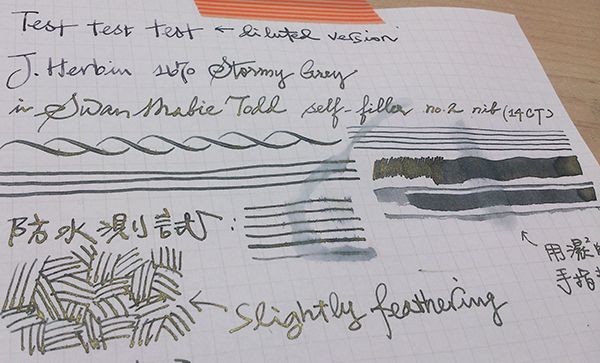 Test test test ← diluted version
J. Herbin 1670 Stormy Grey
in Swan Mabie Todd self-filler no.2 nib (14CT)
防水測試:
用濕的
手指
← Slightly feathering